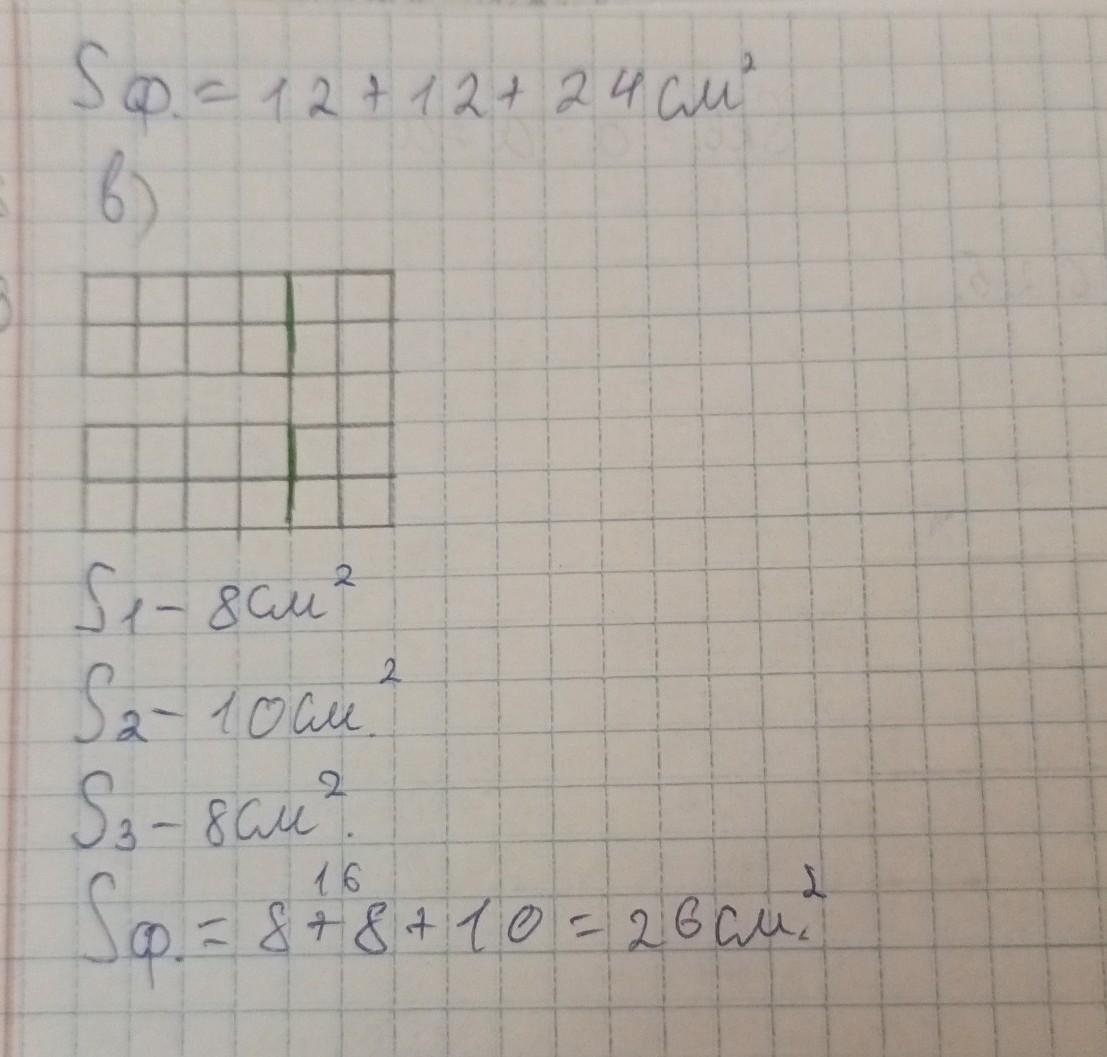 Sф. = 12 + 12 + 24 см²
в)
S1 – 8 см²
S2 – 10 см².
S3 – 8 см².
16
Sф. = 8 + 8 + 10 = 26 см².